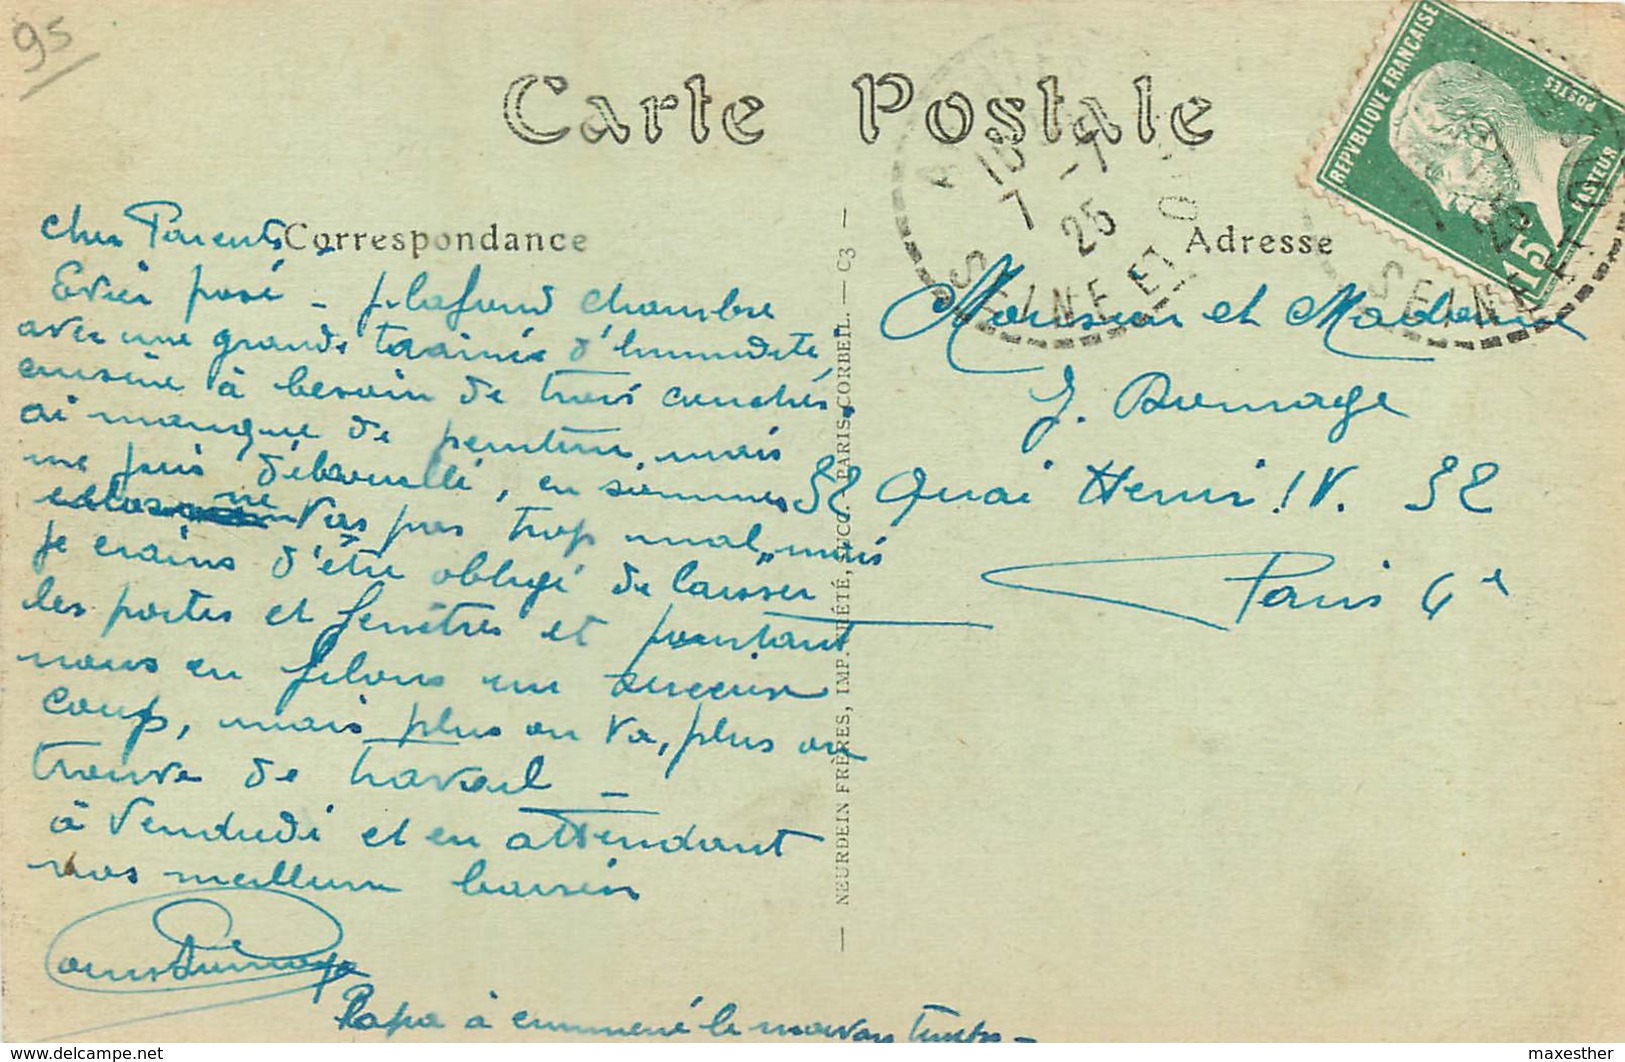 95
Carte Postale
REPVBLIQVE FRANÇAISE
POSTES
PASTEUR
15
10
7 -7
25
SEINE ET O
SEINE ET O
Correspondance
Adresse
cher Parents
Evier posé – plafond chambre
avec une grande trainée d'humidité,
cuisine à besoin de trois couches,
ai manqué de peinture, mais
me suis débrouillé, en sommes
ne vas pas trop mal, mais
je crains d'être obligé de laisser
les portes et fenêtres et pourtant
nous en filons un
coup, mais plus on va, plus on
trouve de travail –
à Vendredi et en attendant
nos meilleurs baisers
Papa à emmené le mauvais temps –
Monsieur et Madame
J. Dumage
32 Quai Henri IV. 32
Paris 4e
— NEURDEIN FRÈRES, IMP. CRÉTÉ, SUCC. PARIS-CORBEIL. — C3 —
delcampe.net
maxesther